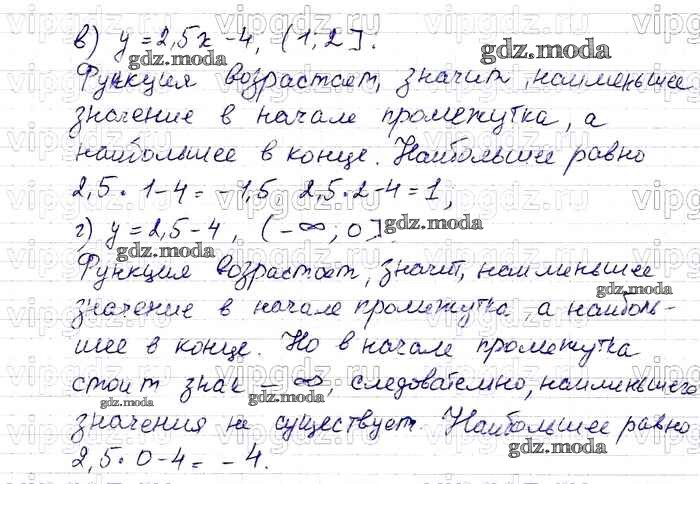 в) y = 2,5x - 4, (1; 2].
Функция возрастает, значит, наименьшее
значение в начале промежутка, а
наибольшее в конце. Наибольшее равно
2,5 · 1 - 4 = -1,5, 2,5 · 2 - 4 = 1,
г) y = 2,5 - 4, (-∞; 0].
Функция возрастает, значит, наименьшее
значение в начале промежутка, а наиболь-
шее в конце. Но в начале промежутка
стоит знак -∞, следователно, наименьшего
значения не существует. Наибольшее равно
2,5 · 0 - 4 = -4.